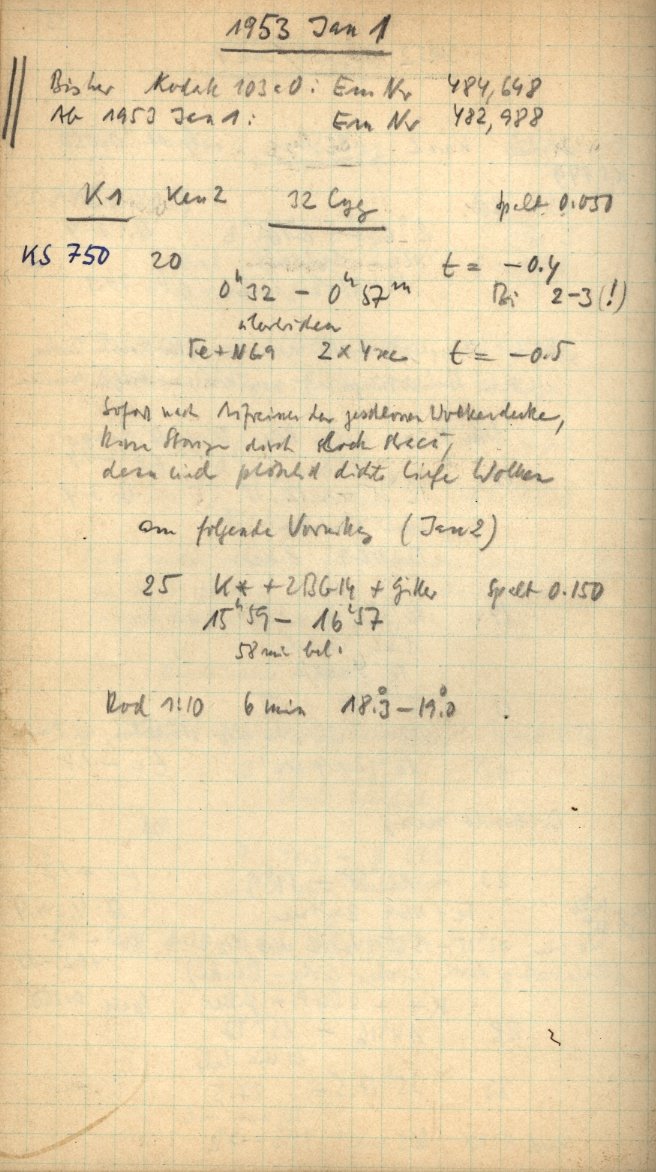 1953 Jan 1
Bisher Kodak 103a0: Em Nr 484,648
Ab 1953 Jan 1: Em Nr 482,988
K1 Kam 2 32 Cyg Spalt 0.050
KS 750 20 t = -0.4
0h 32 - 0h 57m Bi 2-3 (!)
Fe + NG9 2 x 4 sec t = -0.5
Sofort nach der geschlossenen Wolkendecke,
keine durch
dann sind plötzlich dichte tiefe Wolken
am folgenden Vormittag (Jan 2)
25 K* + 2BG14 + Gitter Spalt 0.150
15h59 - 16h57
58 min bel.
Rod 1:10 6 min 18.°3 - 19.°0